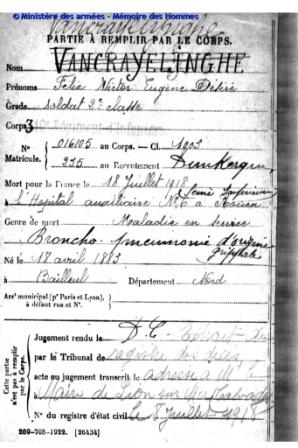 © Ministère des armées - Mémoire des Hommes
PARTIE À REMPLIR PAR LE CORPS.
Nom VANCRAYELINGHE
Prénoms Félix Victor Eugène Désiré
Grade soldat 2e classe
Corps 3
N° 016105 au Corps. — Cl. 1903
Matricule. 235 au Recrutement Dunkerque
Mort pour la France le 18 Juillet 1918
à L'Hôpital auxiliaire N° 6 à Rouen (Seine Inférieure)
Genre de mort Maladie en service
Broncho-pneumonie d'origine grippale
Né le 18 avril 1883
à Bailleul Département Nord
Arrt municipal (pr Paris et Lyon),
à défaut rue et N°.
Cette partie
n'est pas à remplir
par le Corps.
Jugement rendu le D. C. Extrait du
par le Tribunal de registre des décès
acte ou jugement transcrit le adressé à Mr le
Maire de Lion sur Mer Calvados
N° du registre d'état civil le Juillet 1918
269-708-1922. [26434]